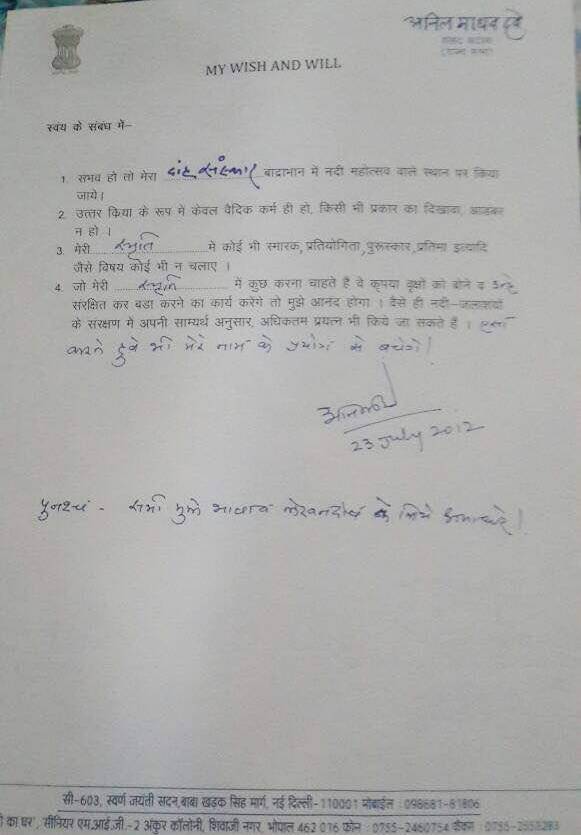 अनिल माधव दवे
संसद सदस्य
(राज्य सभा)
MY WISH AND WILL
स्वयं के संबंध में–
1. संभव हो तो मेरा दाह संस्कार बांद्राभान में नदी महोत्सव वाले स्थान पर किया
जाये।
2. उत्तर क्रिया के रूप में केवल वैदिक कर्म ही हो, किसी भी प्रकार का दिखावा, आडंबर
न हो ।
3. मेरी स्मृति में कोई भी स्मारक, प्रतियोगिता, पुरूस्कार, प्रतिमा इत्यादि
जैसे विषय कोई भी न चलाए ।
4. जो मेरी स्मृति में कुछ करना चाहते हैं वे कृपया वृक्षों को बोने व उन्हे
संरक्षित कर बडा करने का कार्य करेंगे तो मुझे आनंद होगा । वैसे ही नदी–जलाशयों
के संरक्षण में अपनी सामर्थ अनुसार, अधिकतम प्रयत्न भी किये जा सकते हैं । ऐसा
करते हुवे भी मेरे नाम के प्रयोग से बचेंगे!
23 July 2012
पुनश्च - सभी मुझे लेखनदोष के लिये क्षमा करे!
सी-603, स्वर्ण जयंती सदन, बाबा खड़क सिंह मार्ग, नई दिल्ली-110001 मोबाईल : 098681-81806
का घर', सीनियर एम.आई.जी.-2 अंकुर कॉलोनी, शिवाजी नगर, भोपाल 462 016 फोन : 0755-2460754 फैक्स : 0755-2553283